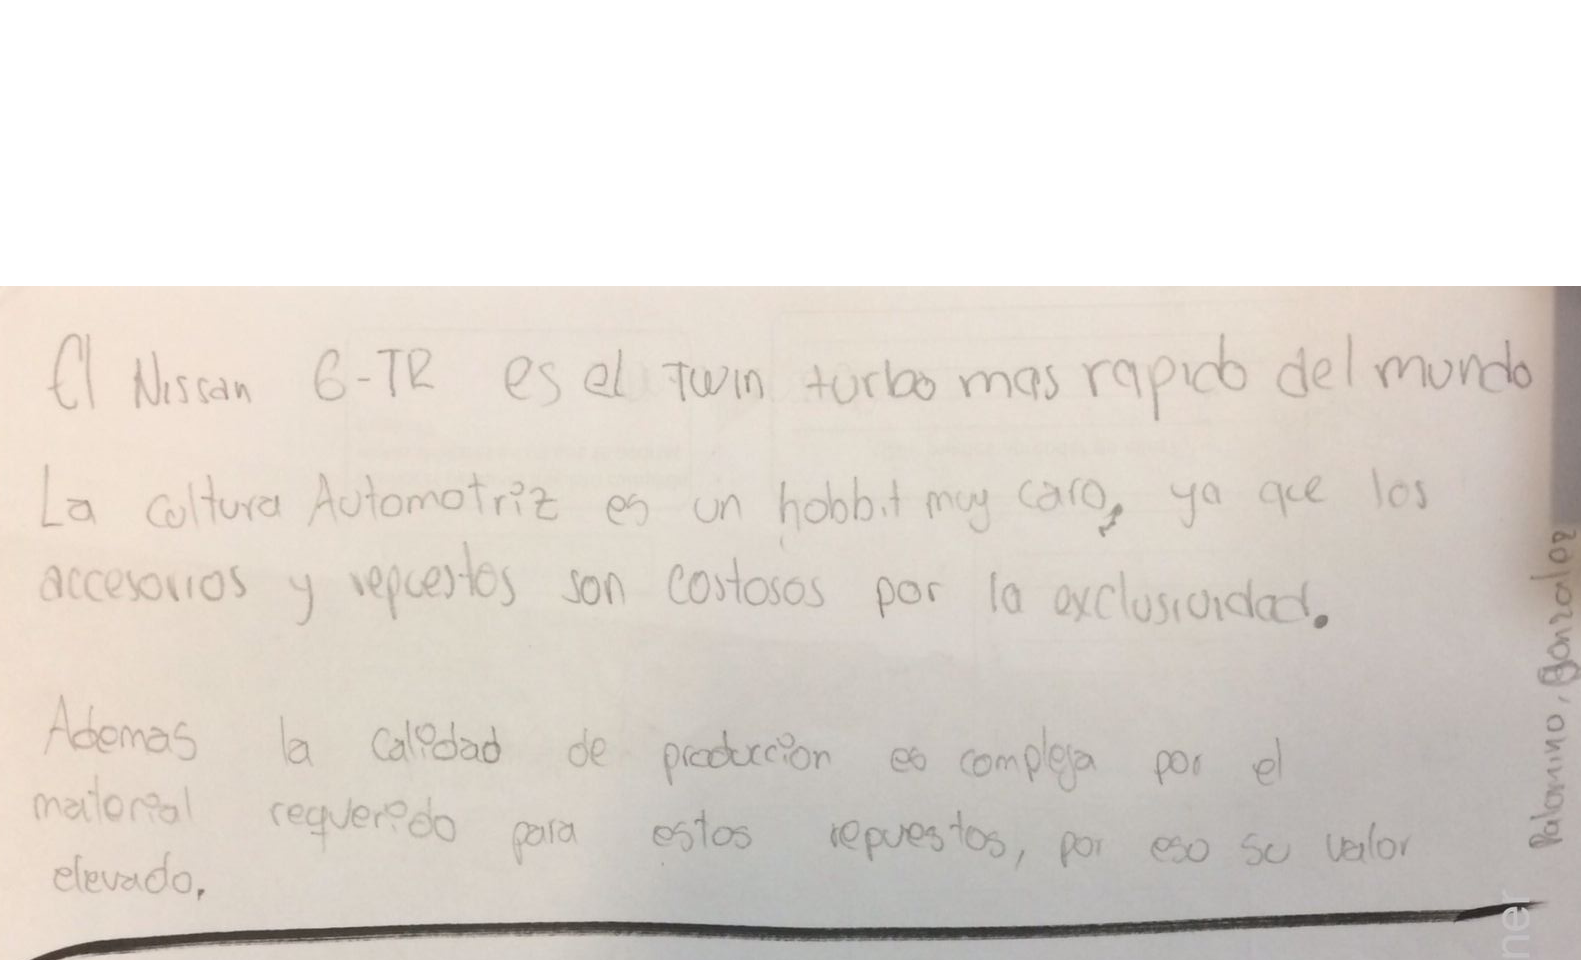 El Nissan G-TR es el twin turbo mas rapido del mundo
La cultura Automotriz es un hobbit muy caro, ya que los
accesorios y repuestos son costosos por la exclusividad.
Ademas la calidad de produccion es compleja por el
material requerido para estos repuestos, por eso su valor
elevado.
Palomino, Gonzalez
ner